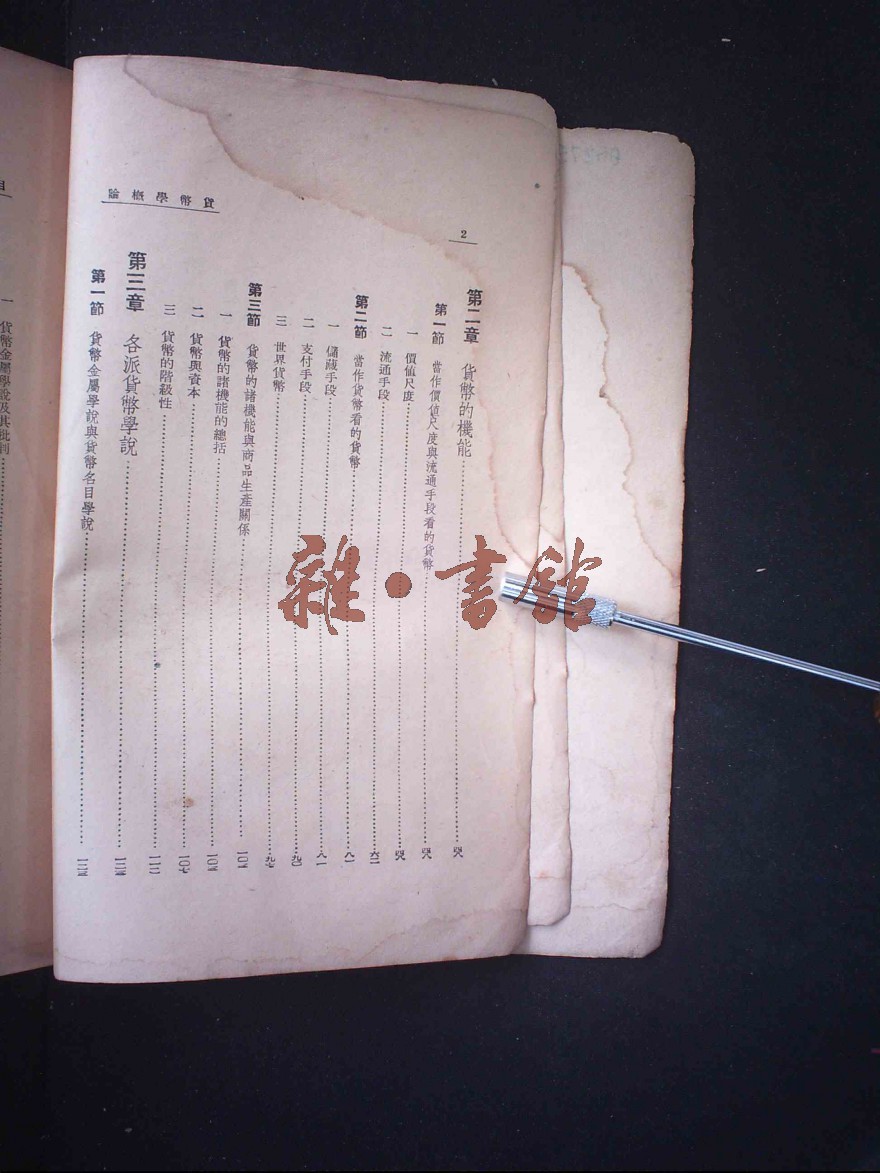 論概學幣貨
2
第二章 貨幣的機能
第一節 當作價值尺度與流通手段看的貨幣
一 價值尺度
二 流通手段 六二
第二節 當作貨幣看的貨幣 八一
一 儲藏手段 八一
二 支付手段 九〇
三 世界貨幣 九七
第三節 貨幣的諸機能與商品生產關係 一〇三
一 貨幣的諸機能的總括 一〇三
二 貨幣與資本 一〇七
三 貨幣的階級性 一一二
第三章 各派貨幣學說 一二三
第一節 貨幣金屬學說與貨幣名目學說 一二三
一 貨幣金屬學說及其批判
雜·書館